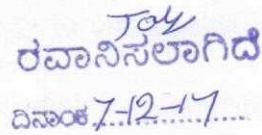 Joy
ರವಾನಿಸಲಾಗಿದೆ
ದಿನಾಂಕ 7-12-17